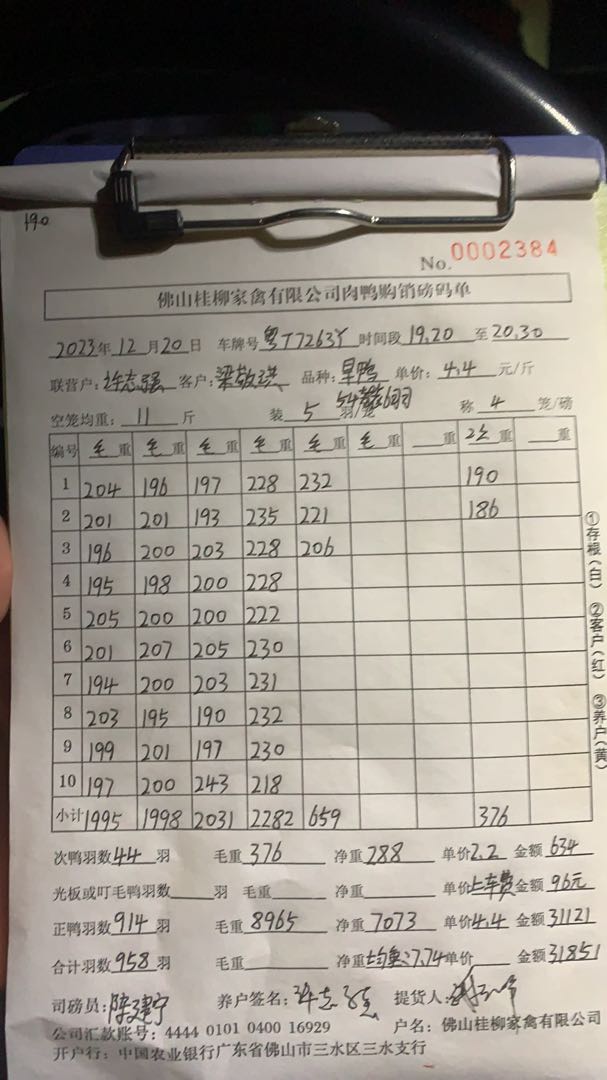 190
No. 0002384
佛山桂柳家禽有限公司肉鸭购销磅码单
2023年12月20日 车牌号粤T7263Y 时间段19.20至20.30
联营户:许志强 客户:梁敬洪 品种:旱鸭 单价:4.4元/斤
空笼均重:11斤 装5羽/笼 54 6羽 称4笼/磅
编号 毛重 毛重 毛重 毛重 毛重 毛重 重 次重 重
1 204 196 197 228 232 190
2 201 201 193 235 221 186
3 196 200 203 228 206
4 195 198 200 228
5 205 200 200 222
6 201 207 205 230
7 194 200 203 231
8 203 195 190 232
9 199 201 197 230
10 197 200 243 218
小计 1995 1998 2031 2282 659 376
①存根(白) ②客户(红) ③养户(黄)
次鸭羽数44羽 毛重376 净重288 单价2.2 金额634
光板或叮毛鸭羽数 羽 毛重 净重 单价上车费金额96元
正鸭羽数914羽 毛重8965 净重7073 单价4.4 金额31121
合计羽数958羽 毛重 净重均重:7.74单价 金额31851
司磅员:陈建宁 养户签名:许志强 提货人:
公司汇款账号:4444 0101 0400 16929 户名:佛山桂柳家禽有限公司
开户行:中国农业银行广东省佛山市三水区三水支行